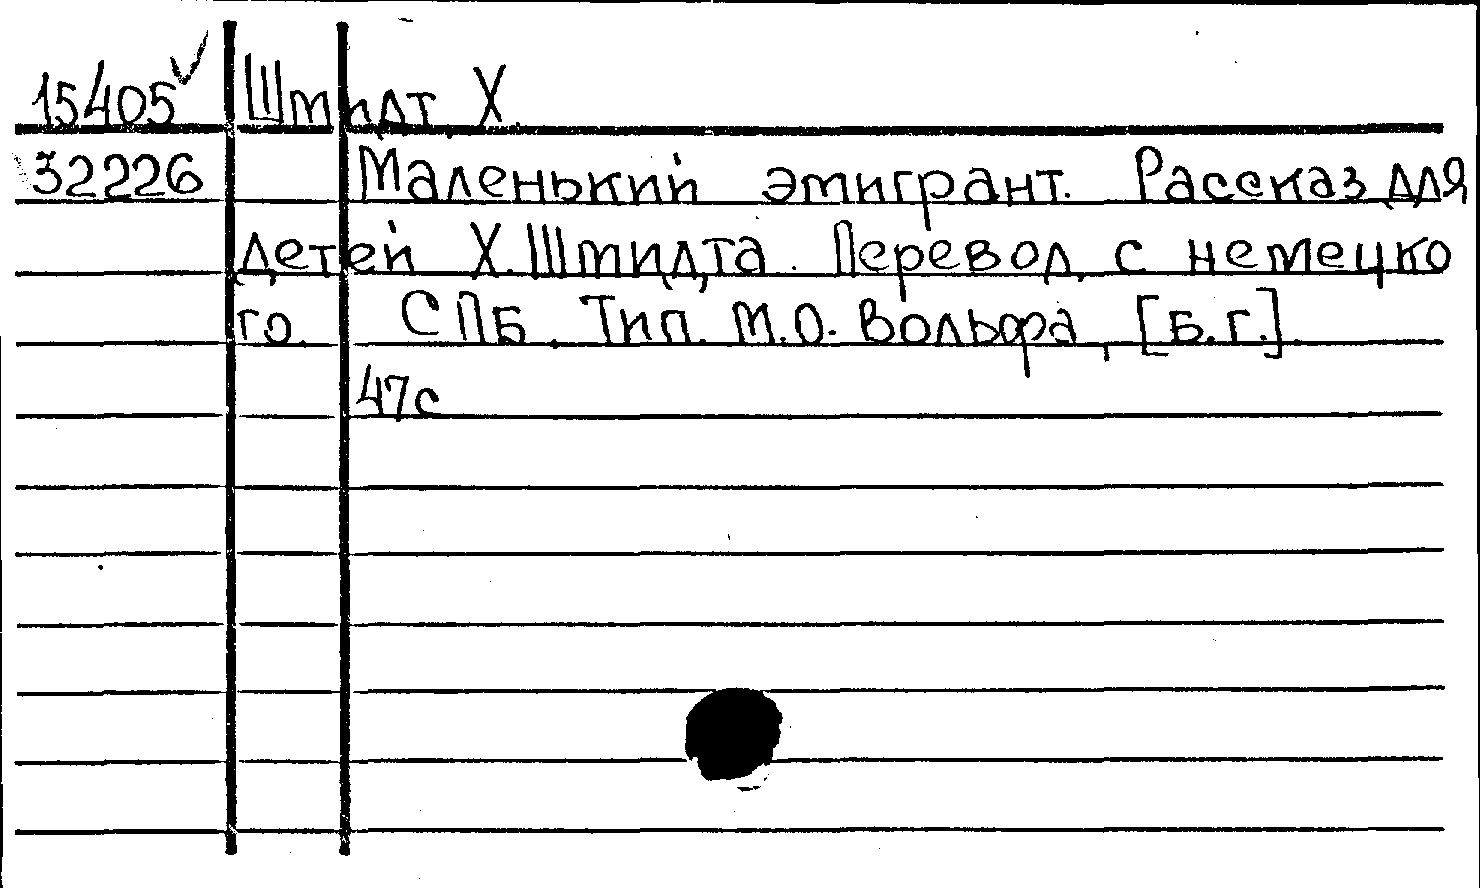 15405 ✓ Штидт Х.
32226 Маленький эмигрант. Рассказ для
детей Х. Штидта. Перевод с немецко
го. СПБ. Тип. М.О. Вольфа, [Б.г.].
47с